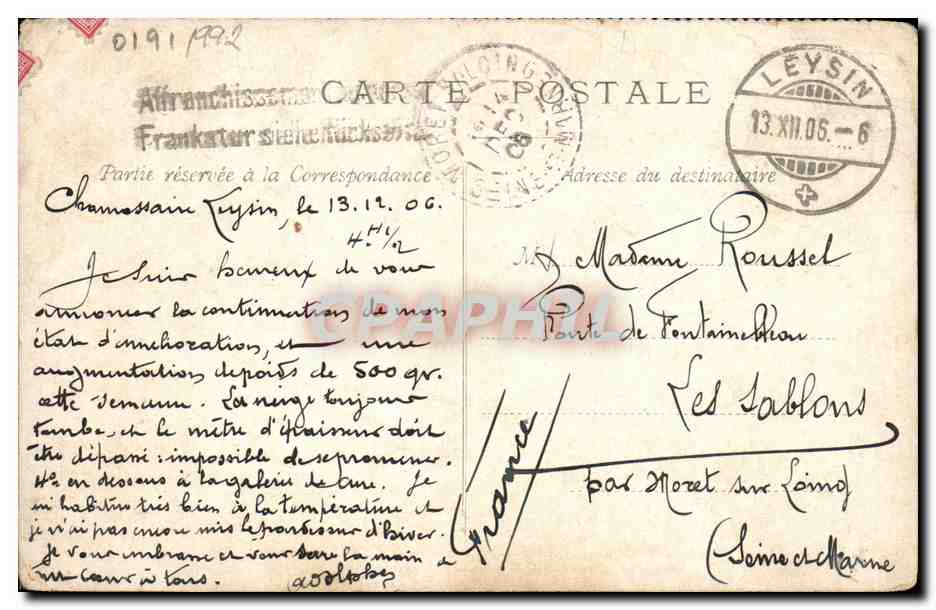 0191/992
Affranchissement
Frankatur siehe Rückseite
CARTE POSTALE
MORET-S-LOING
SEINE-ET-MARNE
14
DEC
06
LEYSIN
13.XII.06.-6
Partie réservée à la Correspondance
Adresse du destinataire
Chamossaire Leysin, le 13.12.06.
4.H 1/2
Je suis heureux de vous
annoncer la continuation de mon
état d'amélioration, et une
augmentation de poids de 500 gr.
cette semaine. La neige toujours
tombe, et le mètre d'épaisseur doit
être dépassé : impossible de se promener.
4° en dessous à la galerie de cure. Je
m'habitue très bien à la température et
je n'ai pas encore mis le pardessus d'hiver.
Je vous embrasse et vous serre la main
un cœur à tous. Adolphe
M Madame Roussel
Route de Fontainebleau
Les Sablons
par Moret sur Loing
(Seine et Marne
France
CPAPHIL